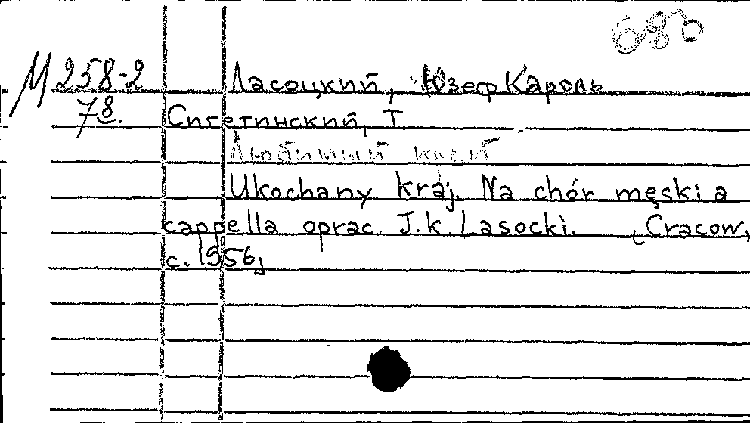 680
М 258-2
78.
Ласоцкий, Юзеф Кароль
Сигетинский, Т.
Любимый край
Ukochany kraj. Na chór męski a
cappella oprac. J.K. Lasocki. [Cracow,
c. 1956]